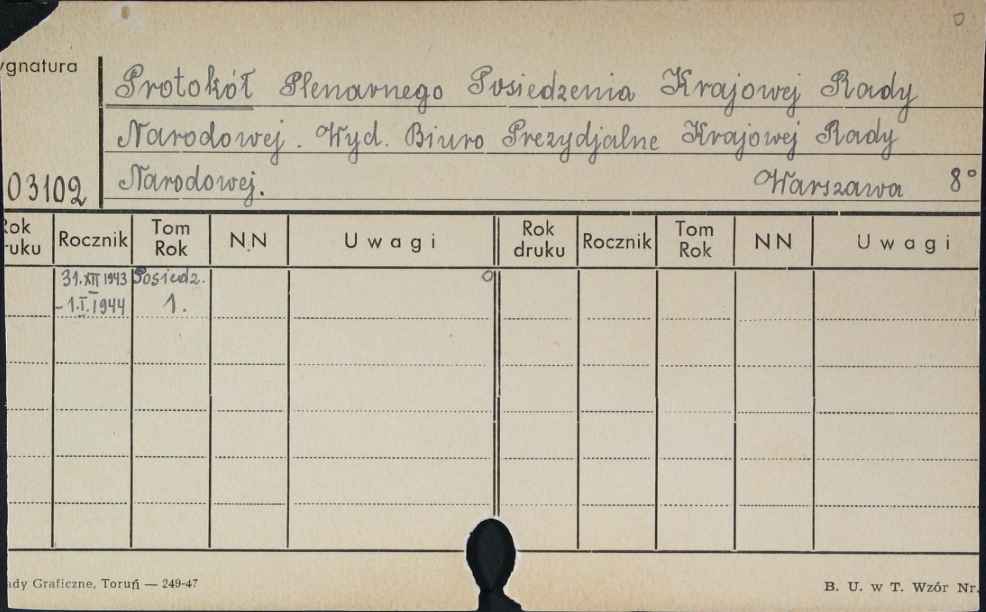 ygnatura
Protokół Plenarnego Posiedzenia Krajowej Rady
Narodowej. Wyd. Biuro Prezydjalne Krajowej Rady
03102 Narodowej. Warszawa 8°
Rok druku Rocznik Tom Rok N.N Uwagi Rok druku Rocznik Tom Rok NN Uwagi
31.XII 1943 Posiedz.
-1.I.1944 1.
ady Graficzne, Toruń — 249-47 B. U. w T. Wzór Nr.